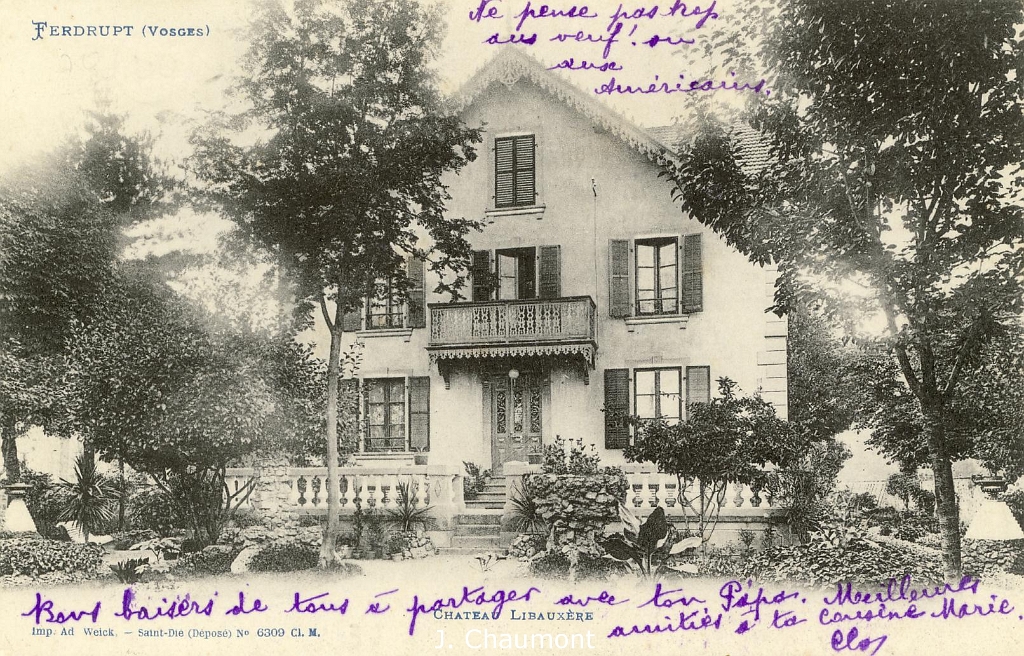 FERDRUPT (VOSGES)
Ne pense pas trop
aus veuf! ou
aux
Américains.
Bons baisers de tous à partager avec ton Papa. Meilleures
amitiés à ta cousine Marie.
CHATEAU LIBAUXÈRE
Imp. Ad Weick. - Saint-Dié (Déposé) No 6309 Cl. M.
J. Chaumont